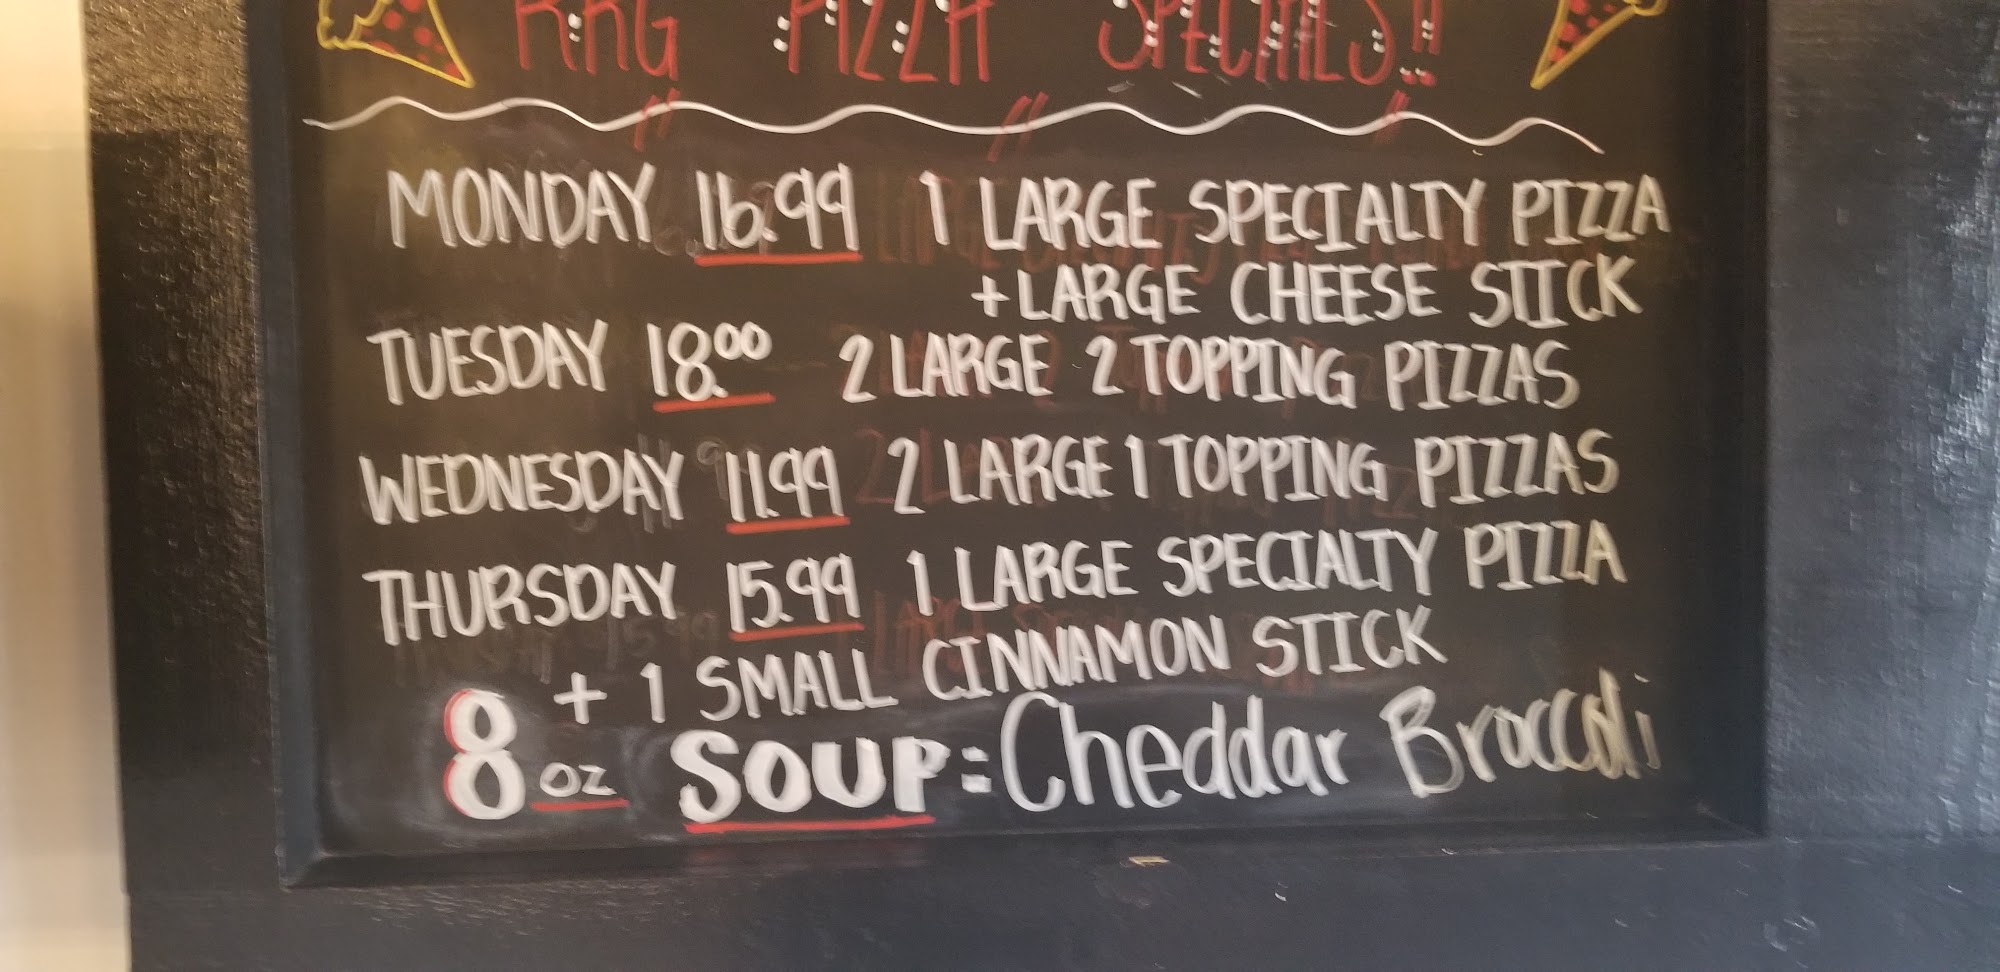 PIZZA SPECIALS!!
MONDAY 16.99 1 LARGE SPECIALTY PIZZA
+ LARGE CHEESE STICK
TUESDAY 18.00 2 LARGE 2 TOPPING PIZZAS
WEDNESDAY 11.99 2 LARGE 1 TOPPING PIZZAS
THURSDAY 15.99 1 LARGE SPECIALTY PIZZA
+ 1 SMALL CINNAMON STICK
8 OZ SOUP: Cheddar Broccoli